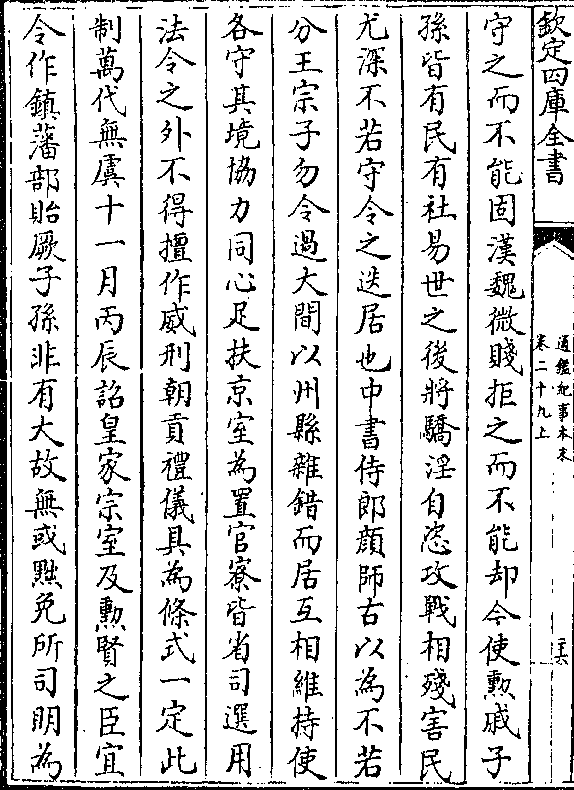 欽定四庫全書
通鑑紀事本末
卷二十九上
守之而不能固漢魏微賤拒之而不能却今使勲戚子
孫皆有民有社易世之後將驕淫自恣攻戰相殘害民
尤深不若守令之迭居也中書侍郎顔師古以為不若
分王宗子勿令過大間以州縣雜錯而居互相維持使
各守其境協力同心足扶京室為置官寮皆省司選用
法令之外不得擅作威刑朝貢禮儀具為條式一定此
制萬代無虞十一月丙辰詔皇家宗室及勲賢之臣宜
令作鎮藩部貽厥子孫非有大故無或黜免所司明為